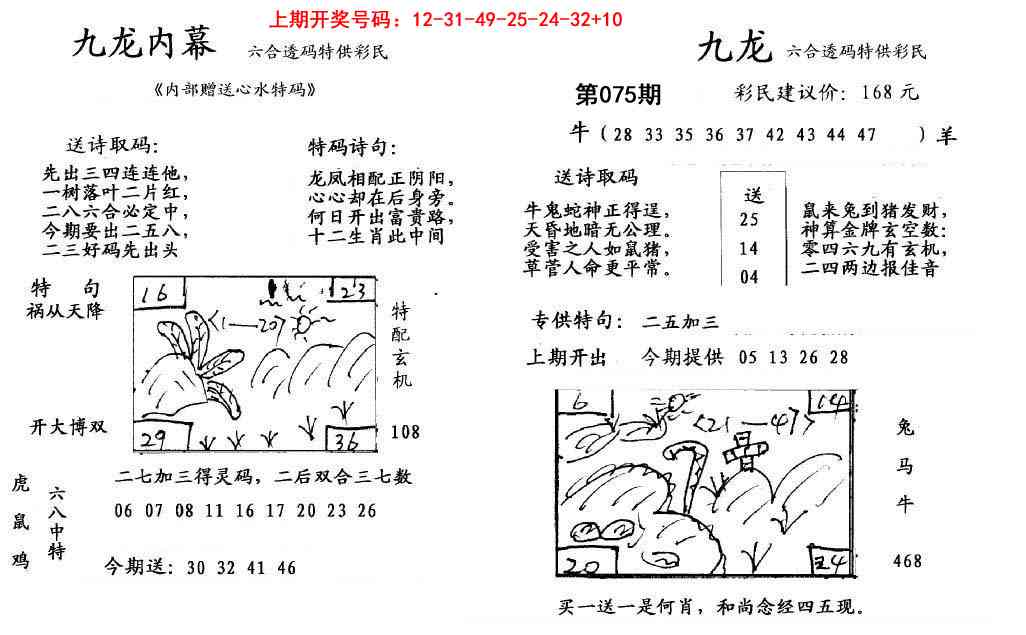 上期开奖号码：12-31-49-25-24-32+10
九龙内幕 六合透码特供彩民
《内部赠送心水特码》
送诗取码：
先出三四连连他，
一树落叶二片红，
二八六合必定中，
今期要出二五八，
二三好码先出头
特码诗句：
龙凤相配正阴阳，
心心却在后身旁。
何日开出富贵路，
十二生肖此中间
特 句
祸从天降
开大博双
16
23
<1—20>
29
36
特配玄机
108
二七加三得灵码，二后双合三七数
虎鼠鸡
六八中特
06 07 08 11 16 17 20 23 26
今期送：30 32 41 46
九龙 六合透码特供彩民
第075期 彩民建议价：168元
牛（28 33 35 36 37 42 43 44 47 ）羊
送诗取码
牛鬼蛇神正得逞，
天昏地暗无公理。
受害之人如鼠猪，
草菅人命更平常。
送
25
14
04
鼠来兔到猪发财，
神算金牌玄空数：
零四六九有玄机，
二四两边报佳音
专供特句：二五加三
上期开出 今期提供 05 13 26 28
6
14
<21—47>
20
24
兔
马
牛
468
买一送一是何肖，和尚念经四五现。